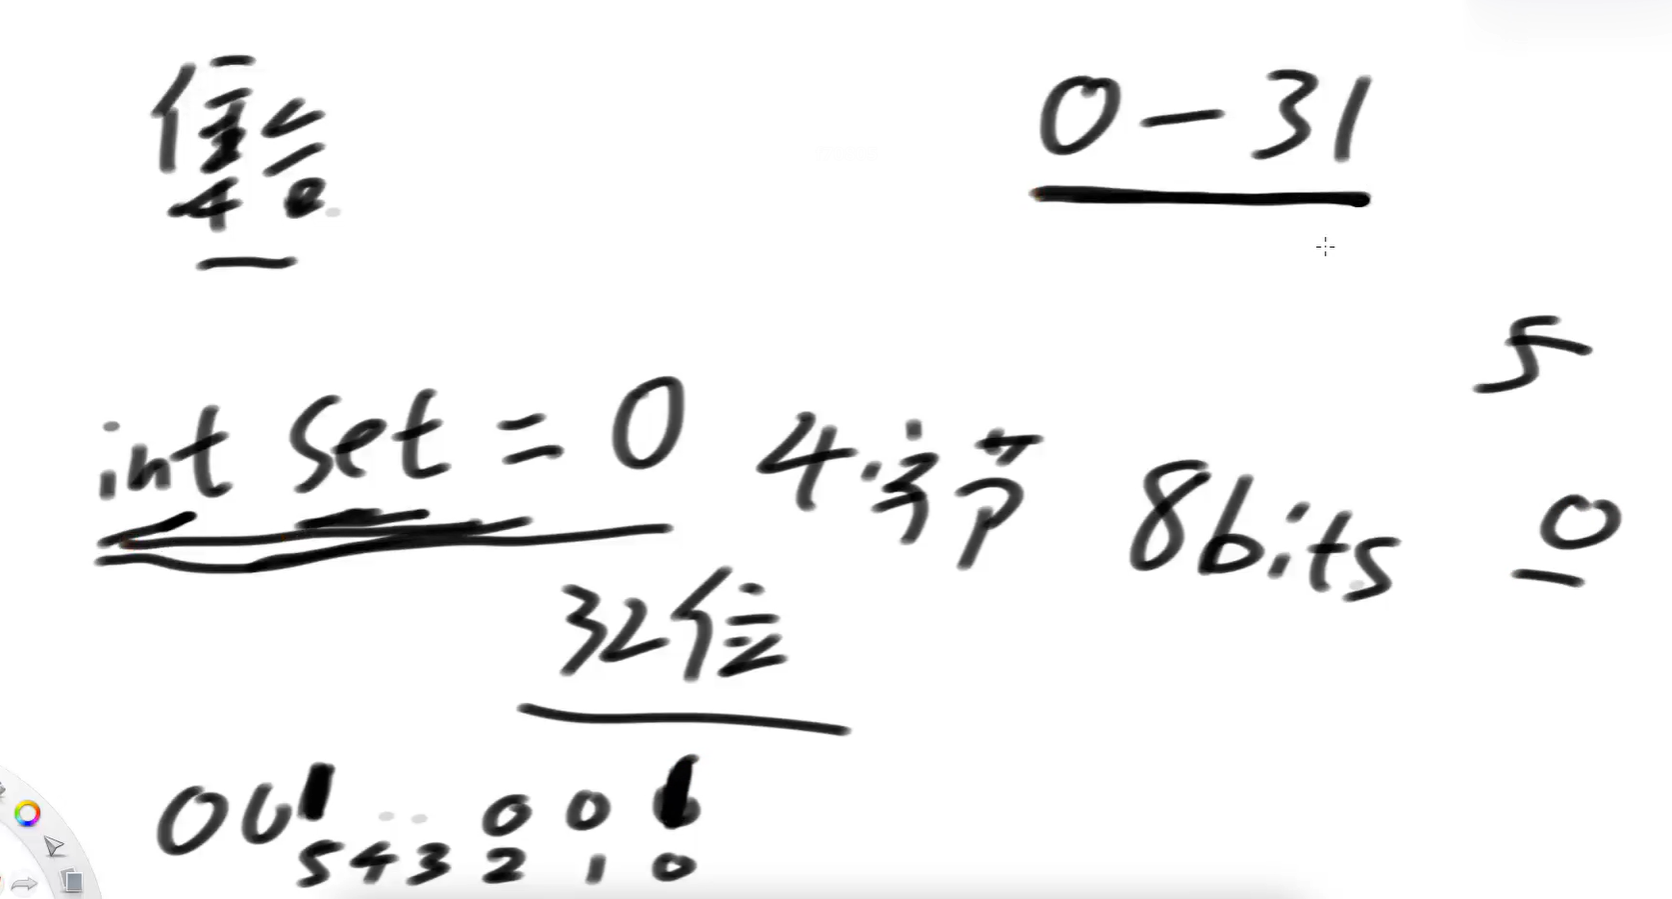 0-31
5
int set = 0 4字节 8bits 0
32位
001 .. 0 0 1
5 4 3 2 1 0